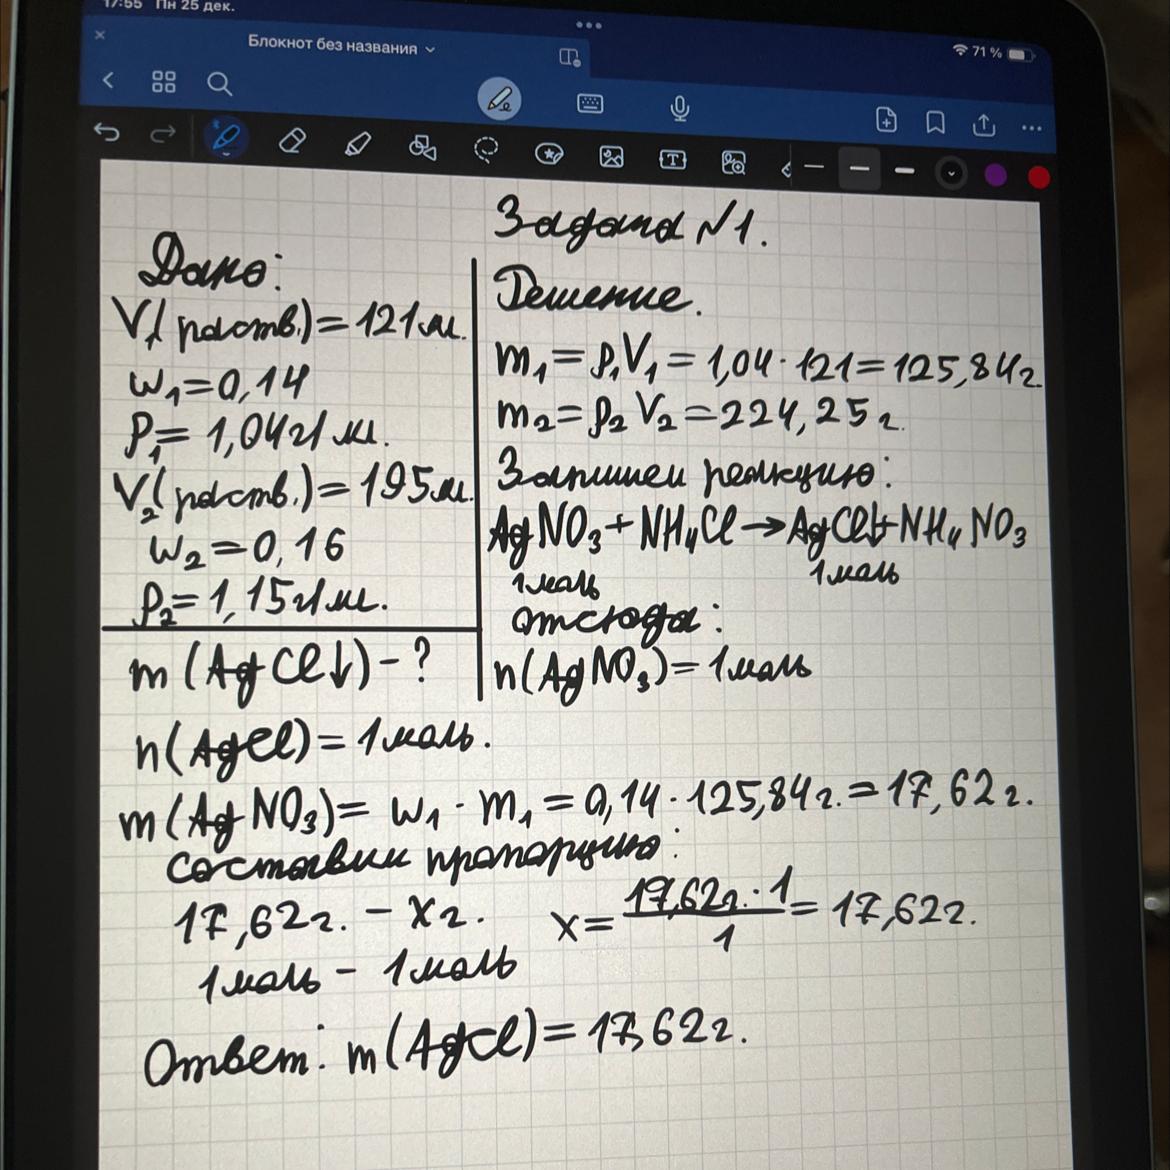 17:55 Пн 25 дек.
Блокнот без названия
71 %
Задача №1.
Дано:
V₁(раств.)=121мл.
w₁=0,14
ρ₁=1,04г/мл.
V₂(раств.)=195мл.
w₂=0,16
ρ₂=1,15г/мл.
m(AgCl↓)-?
Решение.
m₁=ρ₁V₁=1,04·121=125,84г.
m₂=ρ₂V₂=224,25г.
Запишем реакцию:
AgNO₃+NH₄Cl→AgCl↓+NH₄NO₃
1моль 1моль
отсюда:
n(AgNO₃)=1моль
n(AgCl)=1моль.
m(AgNO₃)=w₁·m₁=0,14·125,84г.=17,62г.
составим пропорцию:
17,62г.-xг. x=17,62г.·1/1=17,62г.
1моль-1моль
Ответ: m(AgCl)=17,62г.